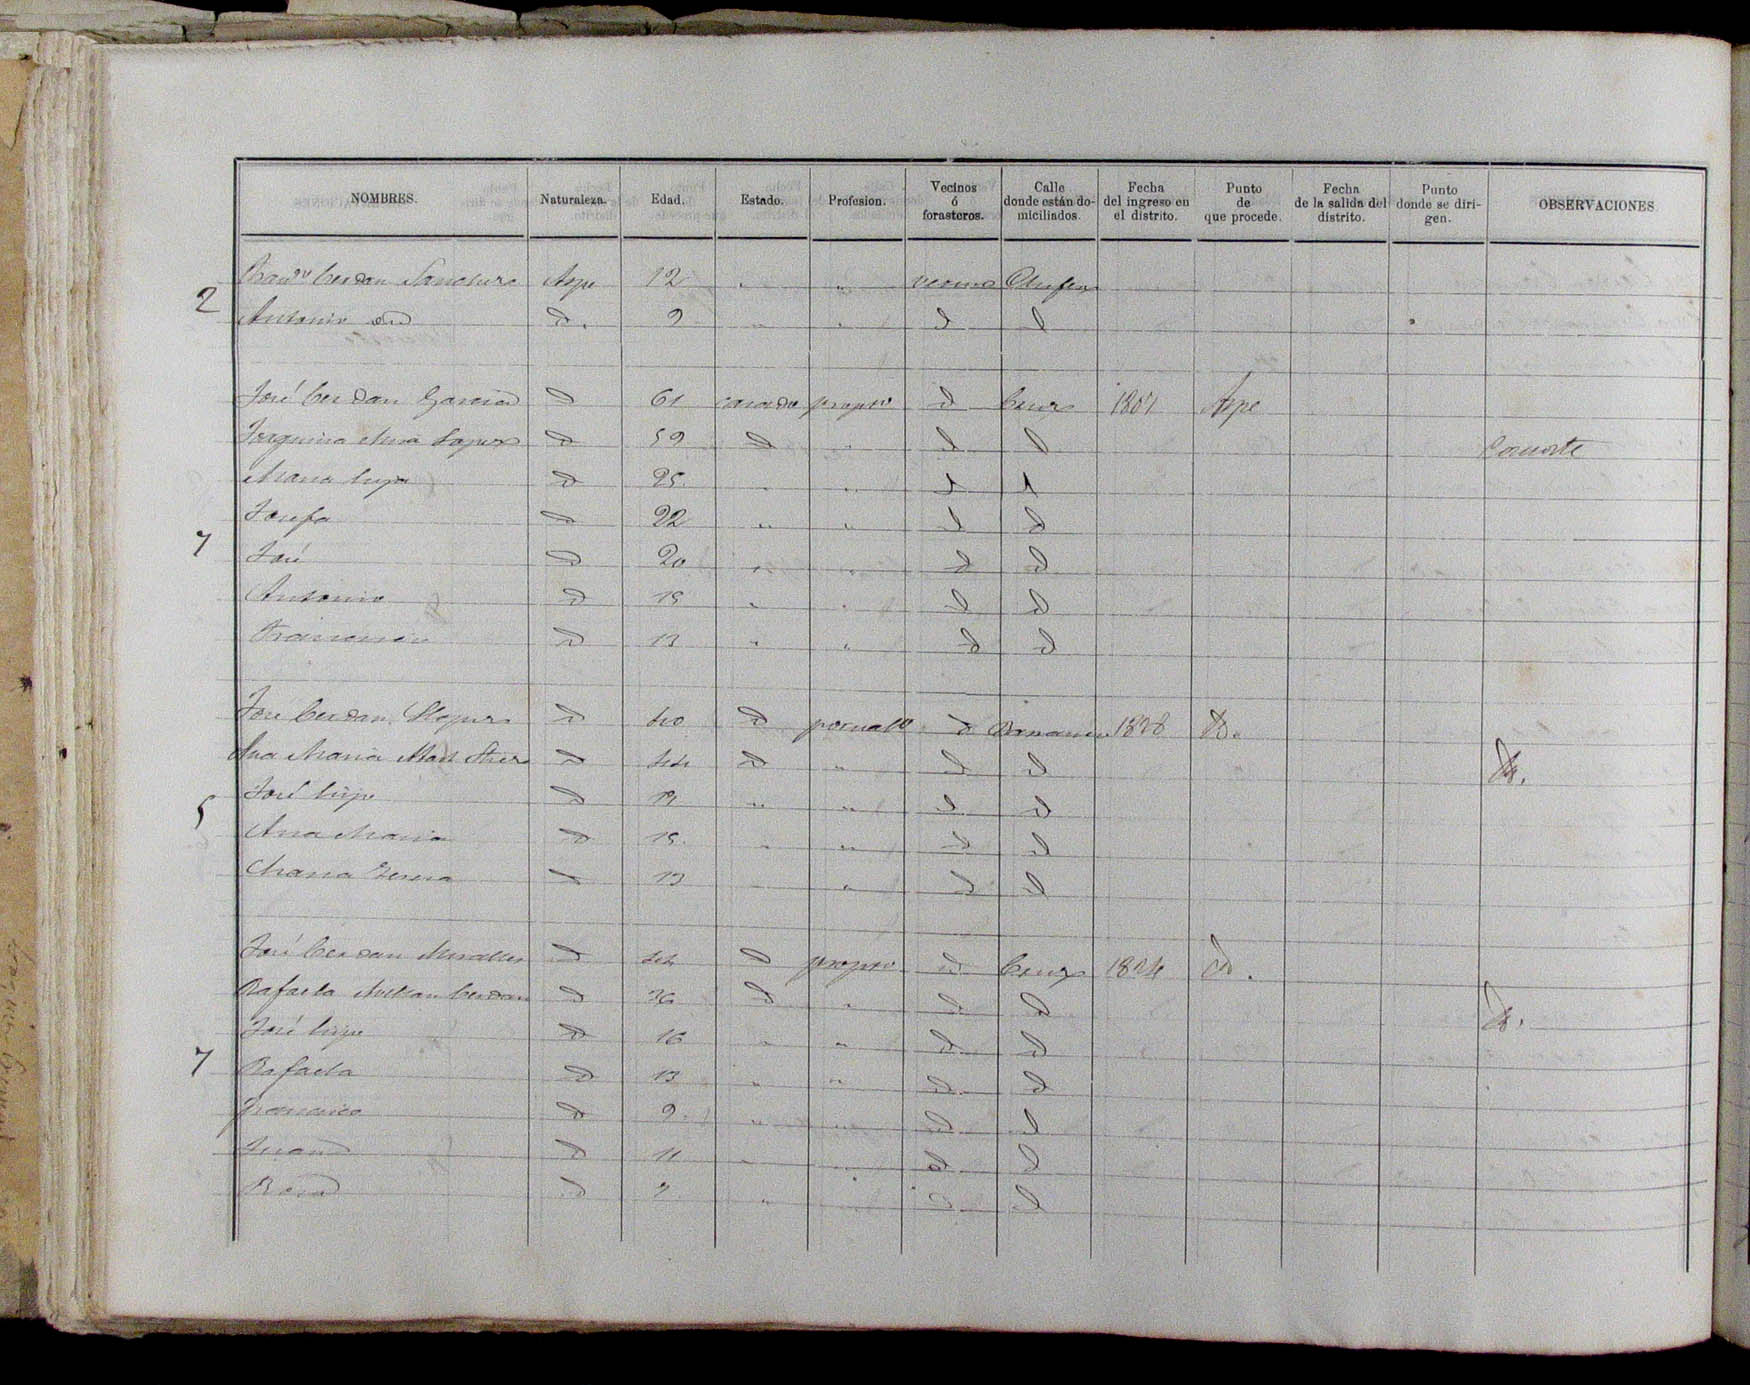 NOMBRES. Naturaleza. Edad. Estado. Profesion. Vecinos ó forasteros. Calle donde están domiciliados. Fecha del ingreso en el distrito. Punto de que procede. Fecha de la salida del distrito. Punto donde se dirigen. OBSERVACIONES
Cerdan Sanchere Aspe 12 " " vecino
2
Antonio id d. 9 " " d d
José Cerdan Garcia d 61 casado propio d Cruz 1807 Aspe
Joaquina Mira Lopez d 59 d " d d Consorte
Maria hija d 25 " " d d
Josefa d 22 " " d d
7
José d 20 " " d d
Antonio d 15 " " d d
Francisco d 13 " " d d
José Cerdan d 40 d jornalo d 1828 d.
Ana Maria d 44 d " d d d.
José hijo d 19 " " d d
5
Ana Maria d 15 " " d d
Maria Teresa d 13 " " d d
José Cerdan Miralles d 44 d propio d Cruz 1824 d.
Rafaela Cerdan d 36 d " d d d.
José hijo d 16 " " d d
7
Rafaela d 13 " " d d
Francisco d 9 " " d d
Juan d 11 " " d d
Rosa d " " d d